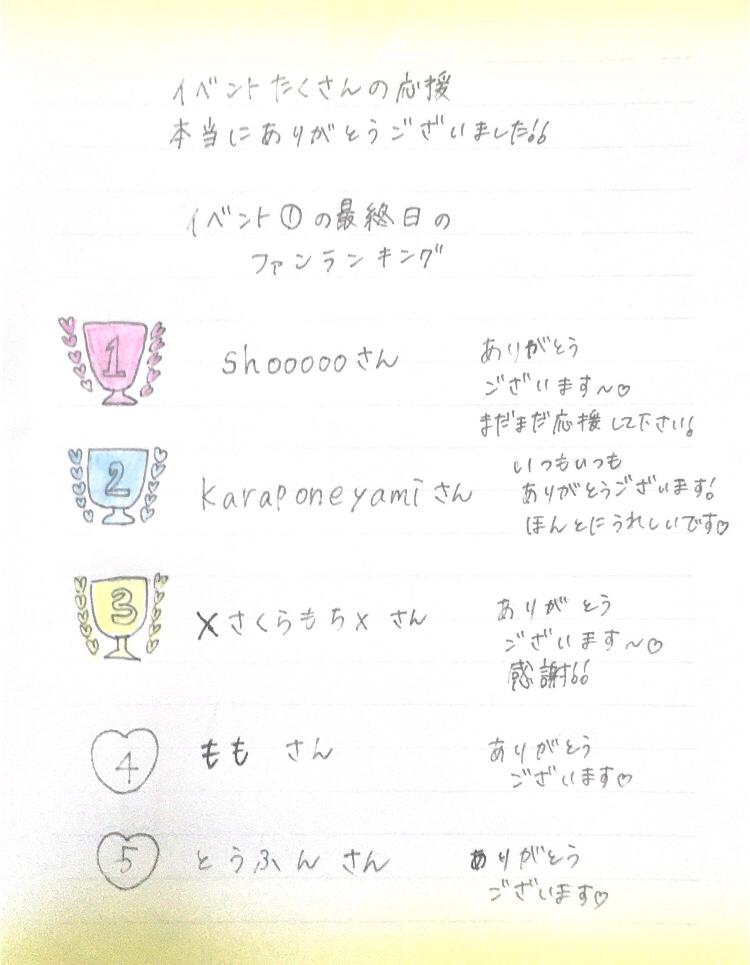 イベントたくさんの応援
本当にありがとうございました!!
イベント①の最終日の
ファンランキング
1
shoooooさん
ありがとう
ございます〜♡
まだまだ応援して下さい!
2
karaponeyamiさん
いつもいつも
ありがとうございます!
ほんとにうれしいです♡
3
xさくらもちxさん
ありがとう
ございます〜♡
感謝!!
4
ももさん
ありがとう
ございます♡
5
とうふんさん
ありがとう
ございます♡